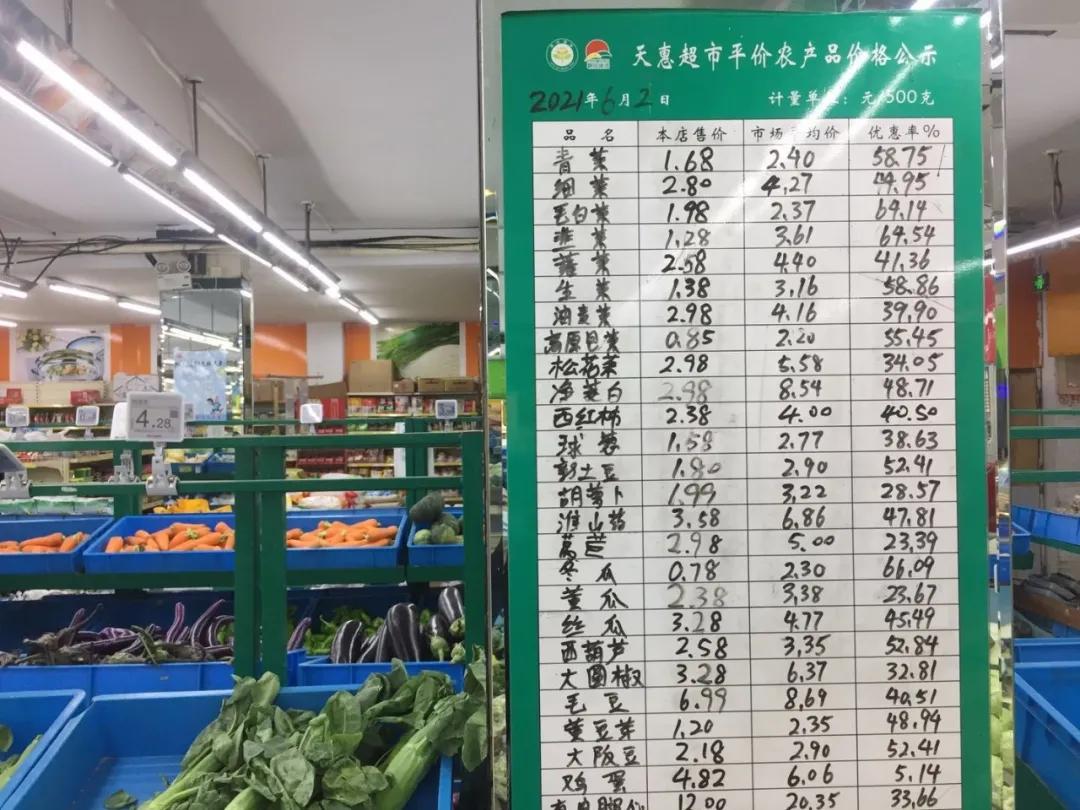 天惠超市平价农产品价格公示
2021年6月2日 计量单位：元/500克
品名 本店售价 市场平均价 优惠率%
青菜 1.68 2.40 58.75
细菜 2.80 4.27 74.95
毛白菜 1.98 2.37 69.14
韭菜 1.28 3.61 64.54
菠菜 2.58 4.40 41.36
生菜 1.38 3.16 58.86
油麦菜 2.98 4.16 39.90
高原包菜 0.85 2.20 55.45
松花菜 2.98 5.58 34.05
净茭白 2.98 8.54 48.71
西红柿 2.38 4.00 40.50
球葱 1.58 2.77 38.63
新土豆 1.80 2.90 52.41
胡萝卜 1.99 3.22 28.57
淮山药 3.58 6.86 47.81
莴苣 2.98 5.00 23.39
冬瓜 0.78 2.30 66.09
黄瓜 2.38 3.38 23.67
丝瓜 3.28 4.77 45.49
西葫芦 2.58 3.35 52.84
大圆椒 3.28 6.37 32.81
毛豆 6.99 8.69 40.51
黄豆芽 1.20 2.35 48.94
大阪豆 2.18 2.90 52.41
鸡蛋 4.82 6.06 5.14
12.00 20.35 33.66
4.28